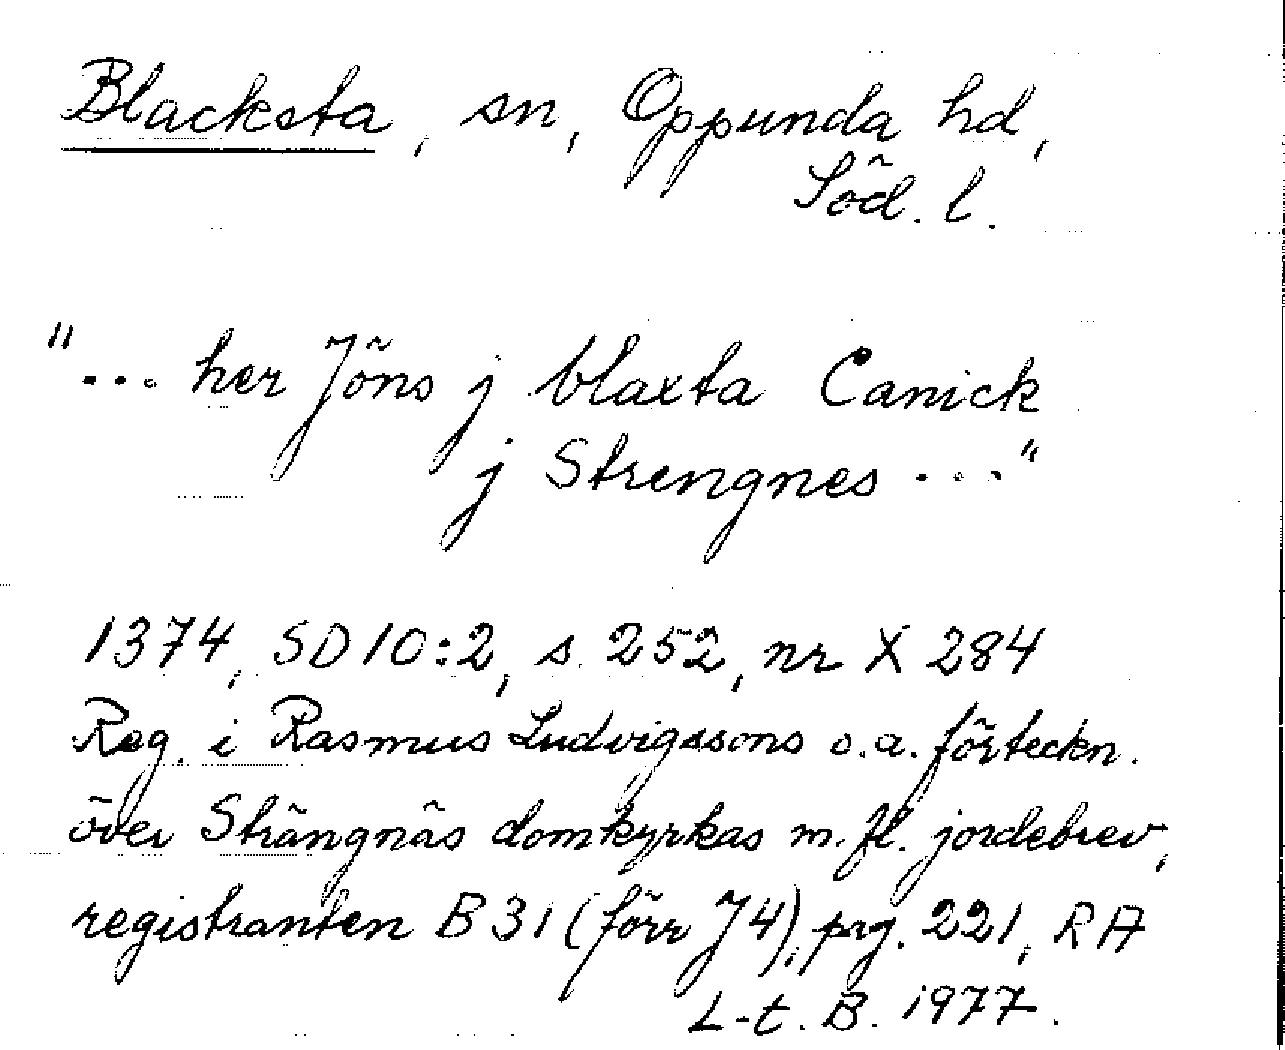 Blacksta, sn, Oppunda hd,
Söd. l.
"... her Jöns j blaxta Canick
j Strengnes ..."
1374, SD 10:2, s. 252, nr X 284
Reg. i Rasmus Ludvigssons o.a. förteckn.
över Strängnäs domkyrkas m.fl. jordebrev,
registranten B 31 (förr J 4), pag. 221, RA
L-t. B. 1977.